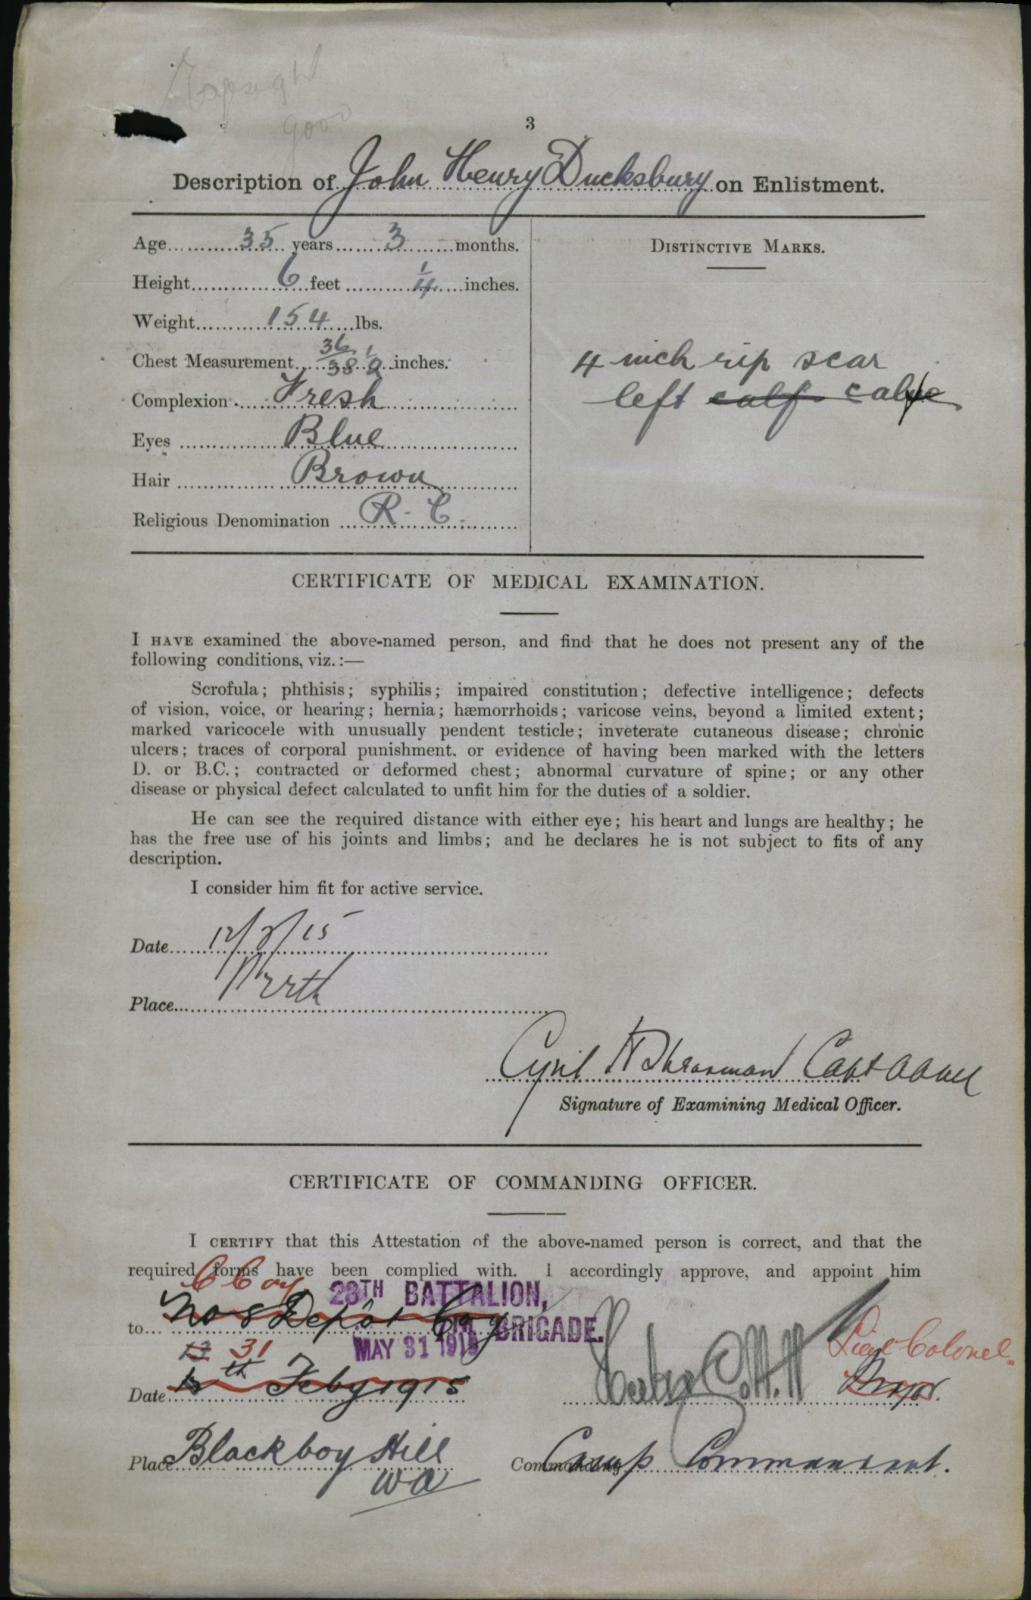 good
3
Description of John Henry Ducksbury on Enlistment.
Age 35 years 3 months.
Height 6 feet 1/4 inches.
Weight 154 lbs.
Chest Measurement 36/38 1/2 inches.
Complexion Fresh
Eyes Blue
Hair Brown
Religious Denomination R. C.
DISTINCTIVE MARKS.
4 inch rip scar
left calf calf
CERTIFICATE OF MEDICAL EXAMINATION.
I HAVE examined the above-named person, and find that he does not present any of the
following conditions, viz.:—
Scrofula; phthisis; syphilis; impaired constitution; defective intelligence; defects
of vision, voice, or hearing; hernia; hæmorrhoids; varicose veins, beyond a limited extent;
marked varicocele with unusually pendent testicle; inveterate cutaneous disease; chronic
ulcers; traces of corporal punishment. or evidence of having been marked with the letters
D. or B.C.; contracted or deformed chest; abnormal curvature of spine; or any other
disease or physical defect calculated to unfit him for the duties of a soldier.
He can see the required distance with either eye; his heart and lungs are healthy; he
has the free use of his joints and limbs; and he declares he is not subject to fits of any
description.
I consider him fit for active service.
Date 12/2/15
Place Perth
Cyril Capt AAMC
Signature of Examining Medical Officer.
CERTIFICATE OF COMMANDING OFFICER.
I CERTIFY that this Attestation of the above-named person is correct, and that the
required forms have been complied with. I accordingly approve, and appoint him
C Coy 28TH BATTALION,
to No 8 Depôt Coy BRIGADE.
31 MAY 31 1915 Lieut Colonel.
Date th Feby 1915 Major.
Place Blackboy Hill Commanding Camp Commandant.
WA